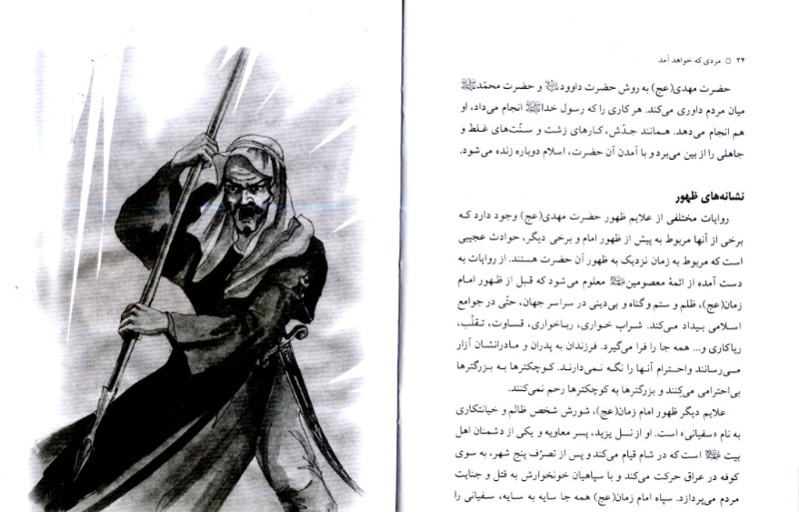 ۲۴ □ مردی که خواهد آمد
حضرت مهدی(عج) به روش حضرت داوودﷺ و حضرت محمّدﷺ
میان مردم داوری می‌کند. هر کاری را که رسول خداﷺ انجام می‌داد، او
هم انجام می‌دهد. همانند جدّش، کارهای زشت و سنّت‌های غلط و
جاهلی را از بین می‌برد و با آمدن آن حضرت، اسلام دوباره زنده می‌شود.
نشانه‌های ظهور
روایات مختلفی از علایم ظهور حضرت مهدی(عج) وجود دارد که
برخی از آنها مربوط به پیش از ظهور امام و برخی دیگر، حوادث عجیبی
است که مربوط به زمان نزدیک به ظهور آن حضرت هستند. از روایات به
دست آمده از ائمهٔ معصومین معلوم می‌شود که قبل از ظهور امام
زمان(عج)، ظلم و ستم و گناه و بی‌دینی در سراسر جهان، حتّی در جوامع
اسلامی بیداد می‌کند. شراب خواری، رباخواری، قساوت، تقلّب،
ریاکاری و... همه جا را فرا می‌گیرد. فرزندان به پدران و مادرانشان آزار
می‌رسانند واحترام آنها را نگه نمی‌دارند. کوچکترها به بزرگترها
بی‌احترامی می‌کنند و بزرگترها به کوچکترها رحم نمی‌کنند.
علایم دیگر ظهور امام زمان(عج)، شورش شخص ظالم و خیانتکاری
به نام «سفیانی» است. او از نسل یزید، پسر معاویه و یکی از دشمنان اهل
بیت است که در شام قیام می‌کند و پس از تصرّف پنج شهر، به سوی
کوفه در عراق حرکت می‌کند و با سپاهیان خونخوارش به قتل و جنایت
مردم می‌پردازد. سپاه امام زمان(عج) همه جا سایه به سایه، سفیانی را